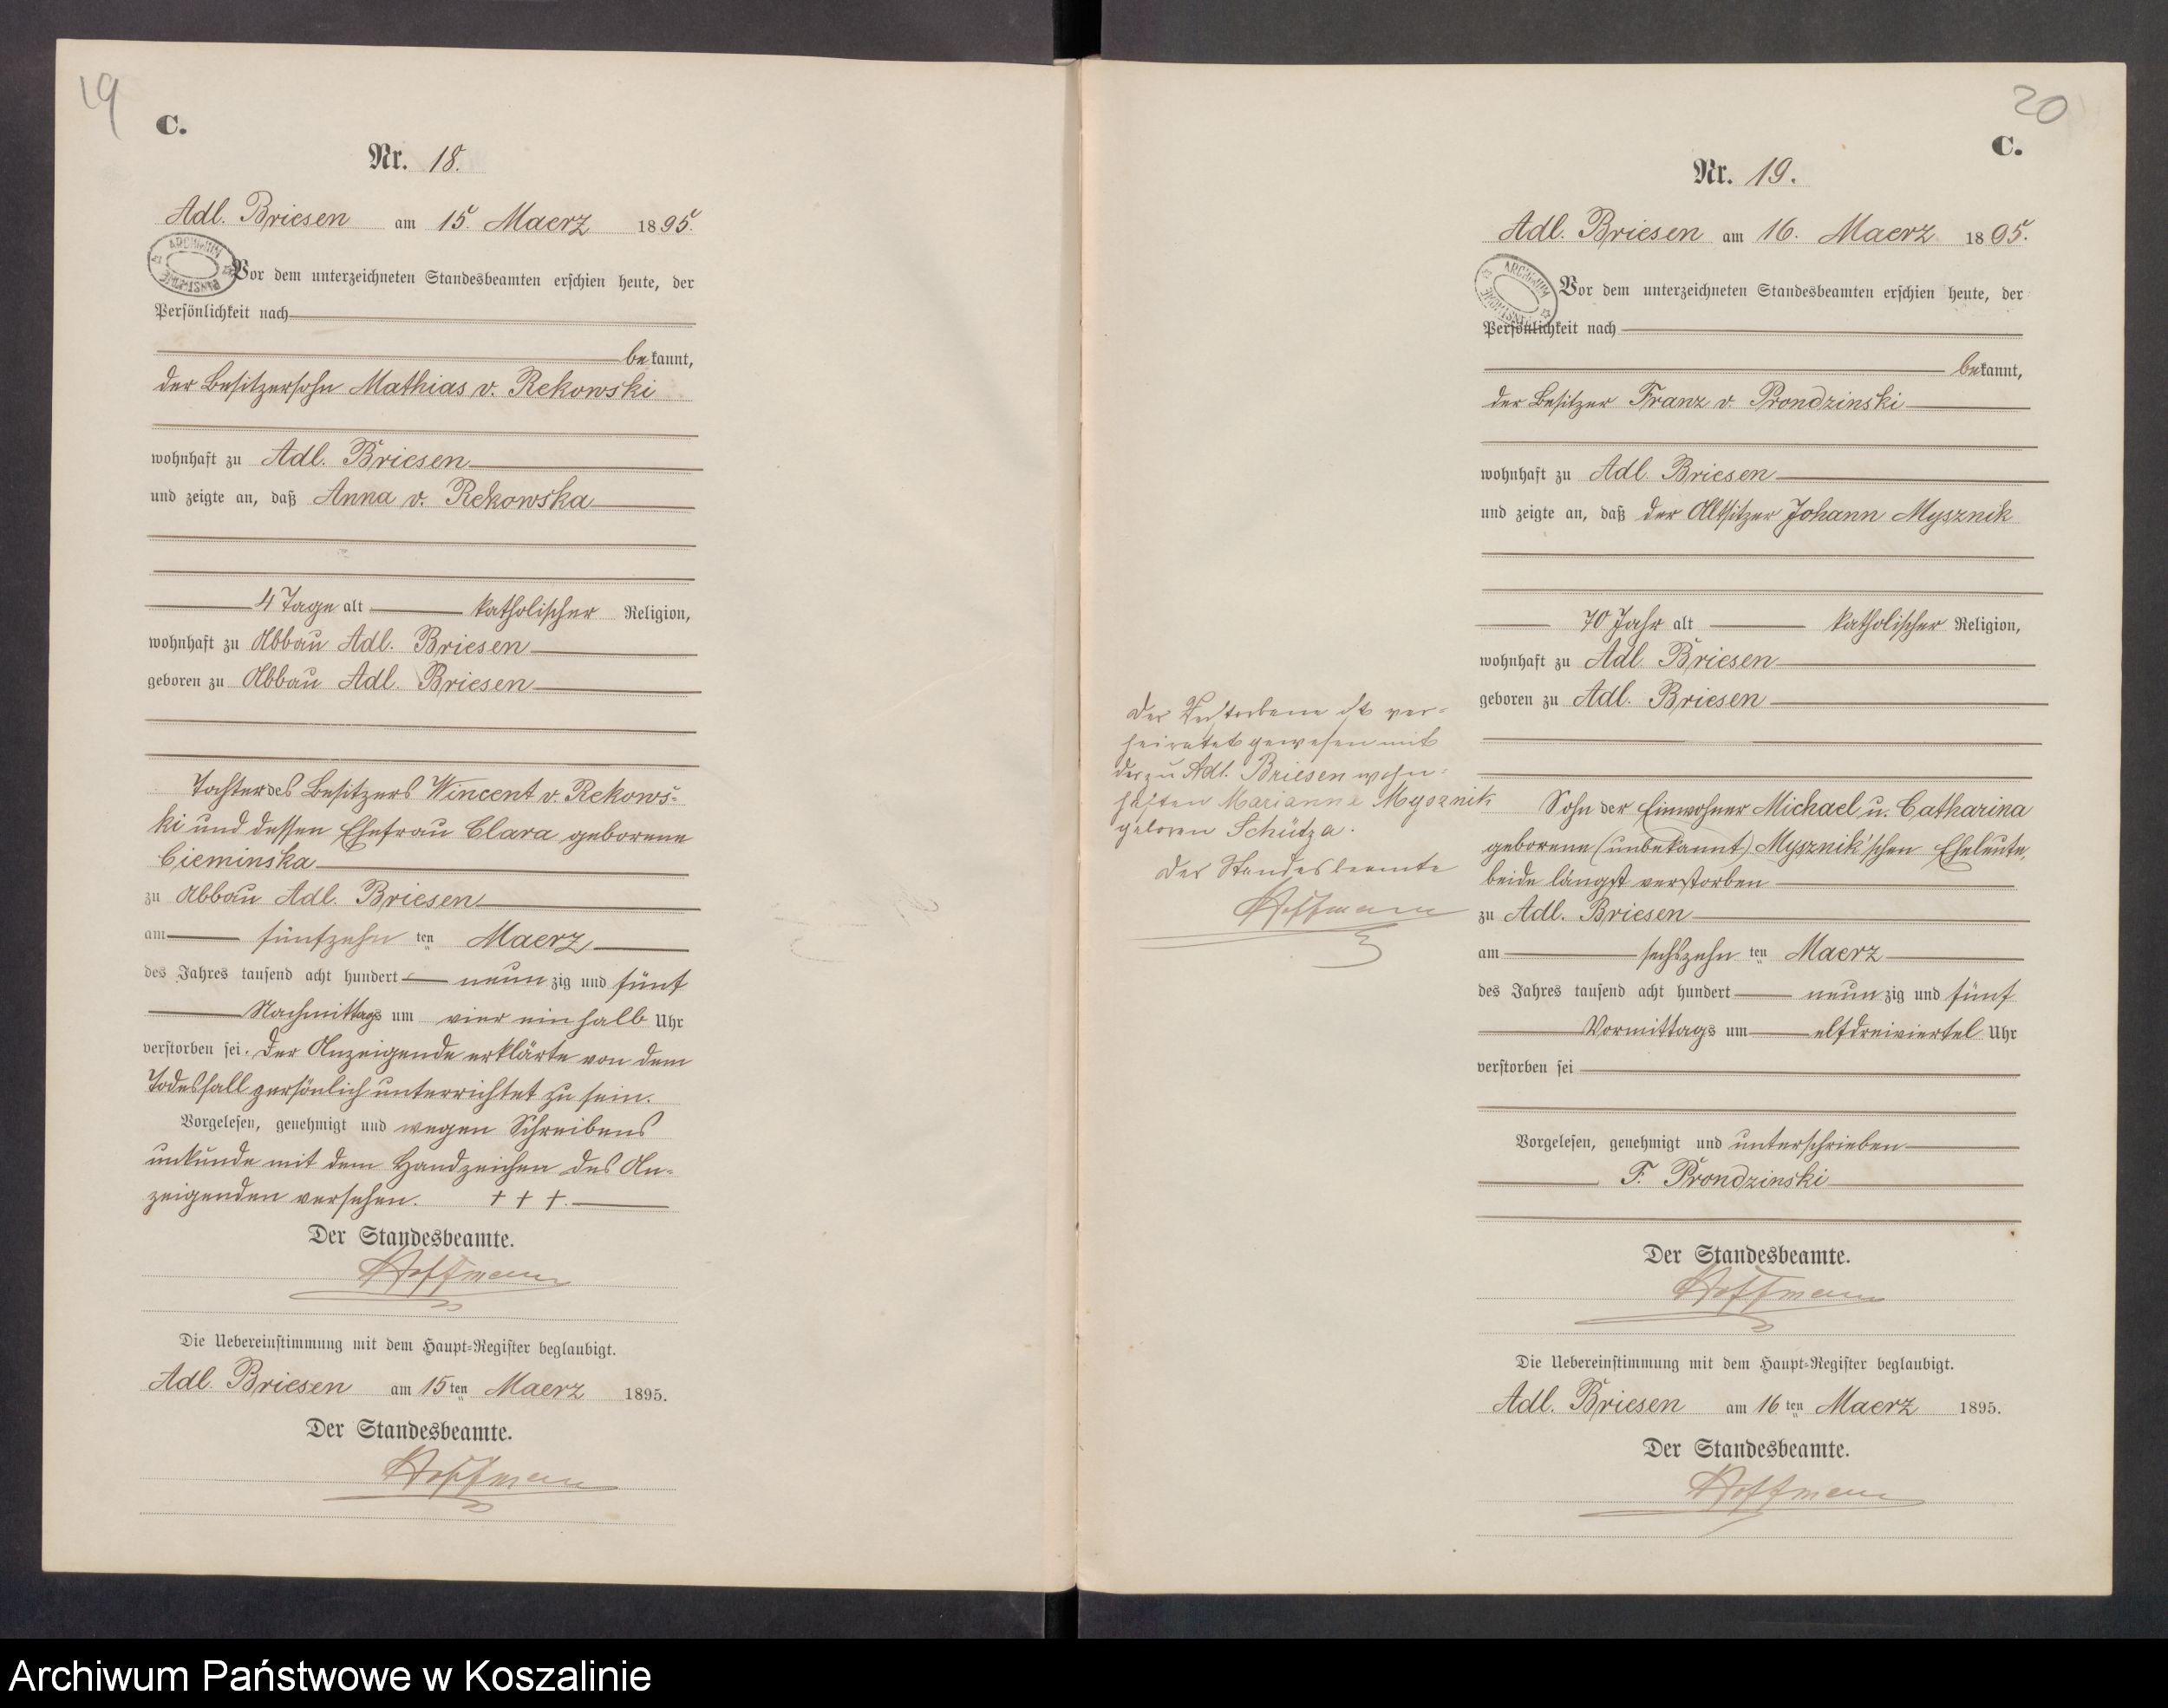 19
C.
Nr. 18.
Adl. Briesen am 15. Maerz 1895.
ARCHIWUM PAŃSTWOWE
Vor dem unterzeichneten Standesbeamten erschien heute, der
Persönlichkeit nach
bekannt,
der Besitzersohn Mathias v. Rekowski
wohnhaft zu Adl. Briesen
und zeigte an, daß Anna v. Rekowska
4 Tage alt katholischer Religion,
wohnhaft zu Abbau Adl. Briesen
geboren zu Abbau Adl. Briesen
Tochter des Besitzers Wincent v. Rekows-
ki und dessen Ehefrau Clara geborene
Cieminska
zu Abbau Adl. Briesen
am fünfzehn ten Maerz
des Jahres tausend acht hundert neun zig und fünf
Nachmittags um vier ein halb Uhr
verstorben sei. Der Anzeigende erklärte von dem
Todesfall persönlich unterrichtet zu sein.
Vorgelesen, genehmigt und wegen Schreibens
unkunde mit dem Handzeichen des An-
zeigenden versehen. + + +.
Der Standesbeamte.
Hoffmann
Die Uebereinstimmung mit dem Haupt-Register beglaubigt.
Adl. Briesen am 15ten Maerz 1895.
Der Standesbeamte.
Hoffmann
20
C.
Nr. 19.
Adl. Briesen am 16. Maerz 1895.
ARCHIWUM PAŃSTWOWE
Vor dem unterzeichneten Standesbeamten erschien heute, der
Persönlichkeit nach
bekannt,
der Besitzer Franz v. Prondzinski
wohnhaft zu Adl. Briesen
und zeigte an, daß der Altsitzer Johann Mysznik
70 Jahr alt katholischer Religion,
wohnhaft zu Adl. Briesen
geboren zu Adl. Briesen
Sohn der Einwohner Michael u. Catharina
geborene (unbekannt) Mysznik'schen Eheleute,
beide längst verstorben
zu Adl. Briesen
am sechszehn ten Maerz
des Jahres tausend acht hundert neun zig und fünf
Vormittags um elf dreiviertel Uhr
verstorben sei
Vorgelesen, genehmigt und unterschrieben
F. Prondzinski
Der Standesbeamte.
Hoffmann
Die Uebereinstimmung mit dem Haupt-Register beglaubigt.
Adl. Briesen am 16ten Maerz 1895.
Der Standesbeamte.
Hoffmann
Der Verstorbene ist ver-
heiratet gewesen mit
der zu Adl. Briesen wohn-
haften Marianne Mysznik
geboren Schütza.
Der Standesbeamte
Hoffmann
Archiwum Państwowe w Koszalinie